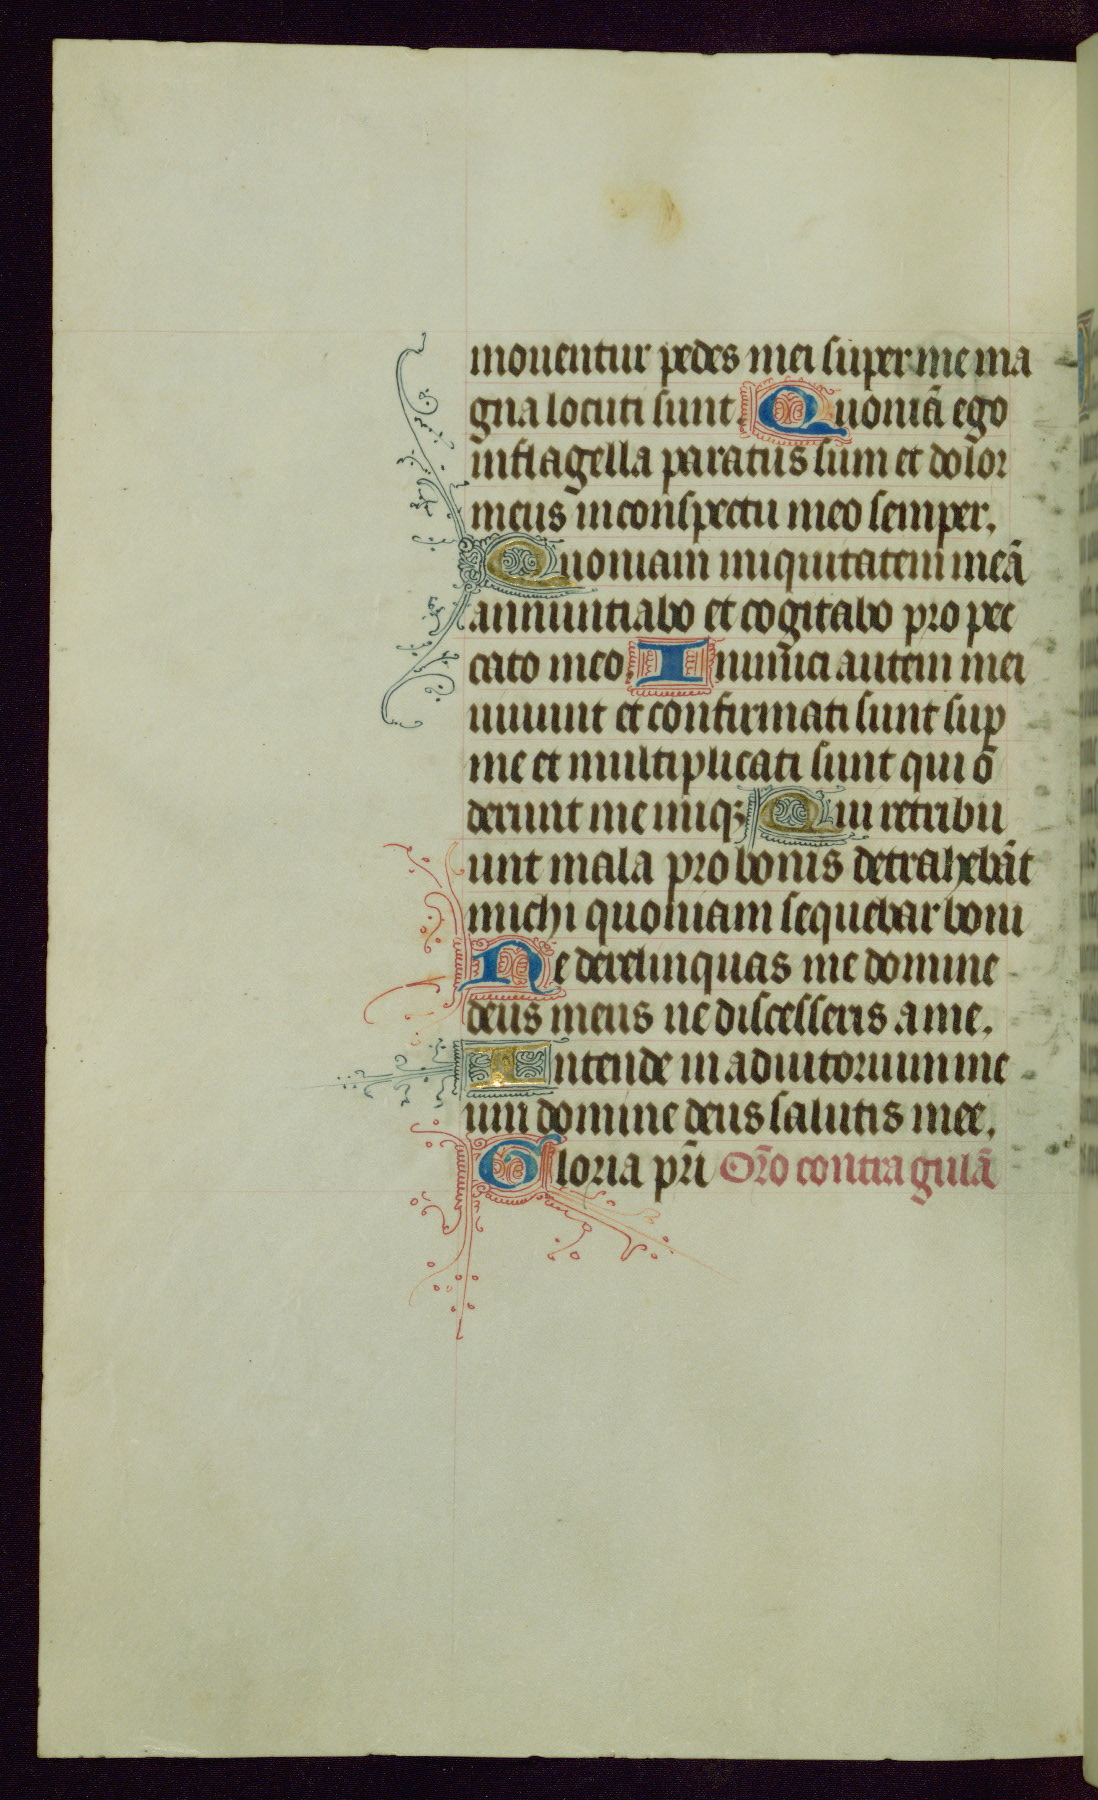 mouentur pedes mei super me ma
gna locuti sunt. Quoniā ego
in flagella paratus sum et dolor
meus in conspectu meo semper.
Quoniam iniquitatem meā
annuntiabo et cogitabo pro pec
cato meo. Inimici autem mei
uiuunt et confirmati sunt suꝑ
me et multiplicati sunt qui o
derunt me iniqꝫ Qui retribu
unt mala pro bonis detrahebāt
michi quoniam sequebar boni
Ne derelinquas me domine
deus meus ne discesseris a me.
Intende in adiutorium me
um domine deus salutis mee.
Gloria pr̄i Or̄o contra gulā